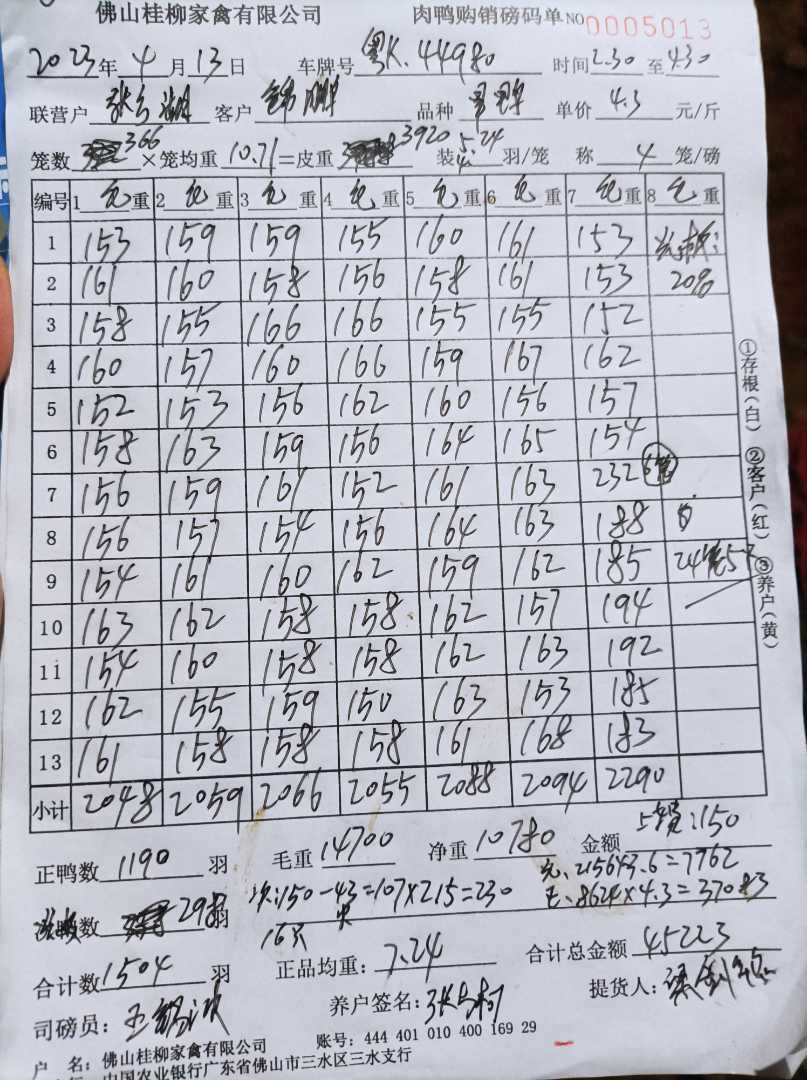 佛山桂柳家禽有限公司 肉鸭购销磅码单 NO 0005013
2023年 4月 13日 车牌号 粤K.44980 时间 2.30 至 4.30
联营户 客户 品种 单价 4.3 元/斤
笼数 366 ×笼均重 10.71 =皮重 3920 装 5.24 羽/笼 称 4 笼/磅
编号 1 毛重 2 毛重 3 毛重 4 毛重 5 毛重 6 毛重 7 毛重 8 毛重
1 153 159 159 155 160 161 153
2 161 160 158 156 158 161 153 20%
3 158 155 166 166 155 155 152
4 160 157 160 166 159 167 162
5 152 153 156 162 160 156 157
6 158 163 159 156 164 165 154
7 156 159 161 152 161 163 232 6笼
8 156 157 154 156 164 163 188
9 154 161 160 162 159 162 185
10 163 162 158 158 162 157 194
11 154 160 158 158 162 163 192
12 162 155 159 150 163 153 185
13 161 158 158 158 161 168 183
小计 2048 2059 2066 2055 2088 2094 2290
①存根(白) ②客户(红) ③养户(黄)
正鸭数 1190 羽 毛重 14700 净重 10780 金额 :150
2156×3.6=7762
数 298 羽 次:150-43=107×2.15=230 8624×4.3=37083
16只
合计数 1504 羽 正品均重: 7.24 合计总金额 45223
司磅员: 养户签名: 提货人:
户 名: 佛山桂柳家禽有限公司 账号: 444 401 010 400 169 29
中国农业银行广东省佛山市三水区三水支行